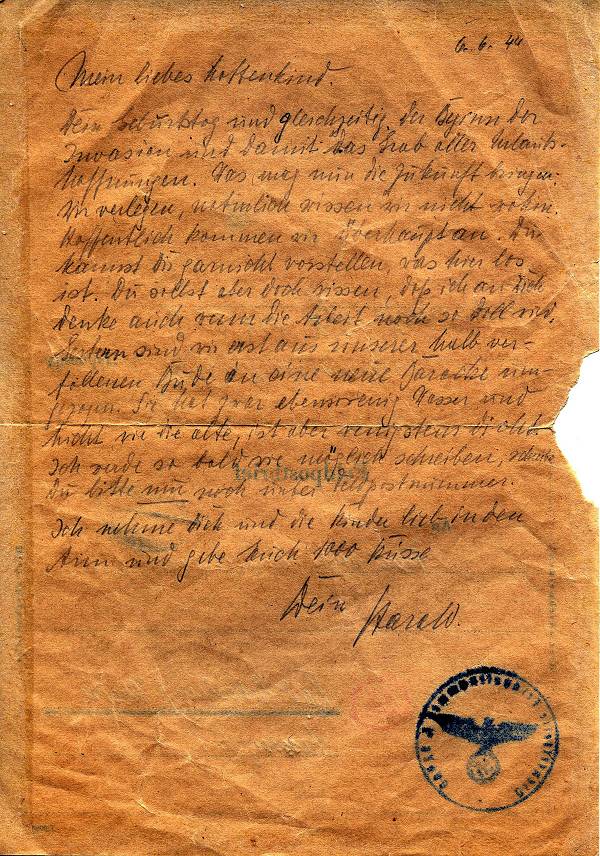 6. 6. 44
Mein liebes Mottenkind.
Dein Geburtstag und gleichzeitig der Beginn der
Invasion und damit das Grab aller Urlaubs-
hoffnungen. Was mag nun die Zukunft bringen.
Wir verlegen, natürlich wissen wir nicht wohin.
Hoffentlich kommen wir überhaupt an. Du
kannst Dir garnicht vorstellen, was hier los
ist. Du sollst aber doch wissen, daß ich an Dich
denke auch wenn die Arbeit noch so doll wird.
Gestern sind wir erst aus unserer halb ver-
fallenen Bude in eine neue Baracke um-
gezogen. Sie hat zwar ebensowenig Wasser und
Licht wie die alte, ist aber wenigstens dicht.
Ich werde so bald wie möglich schreiben, schreib
Du bitte nur noch unter Feldpostnummer.
Ich nehme Dich und die Kinder lieb in den
Arm und gebe Euch 1000 Küsse
Dein Harald.